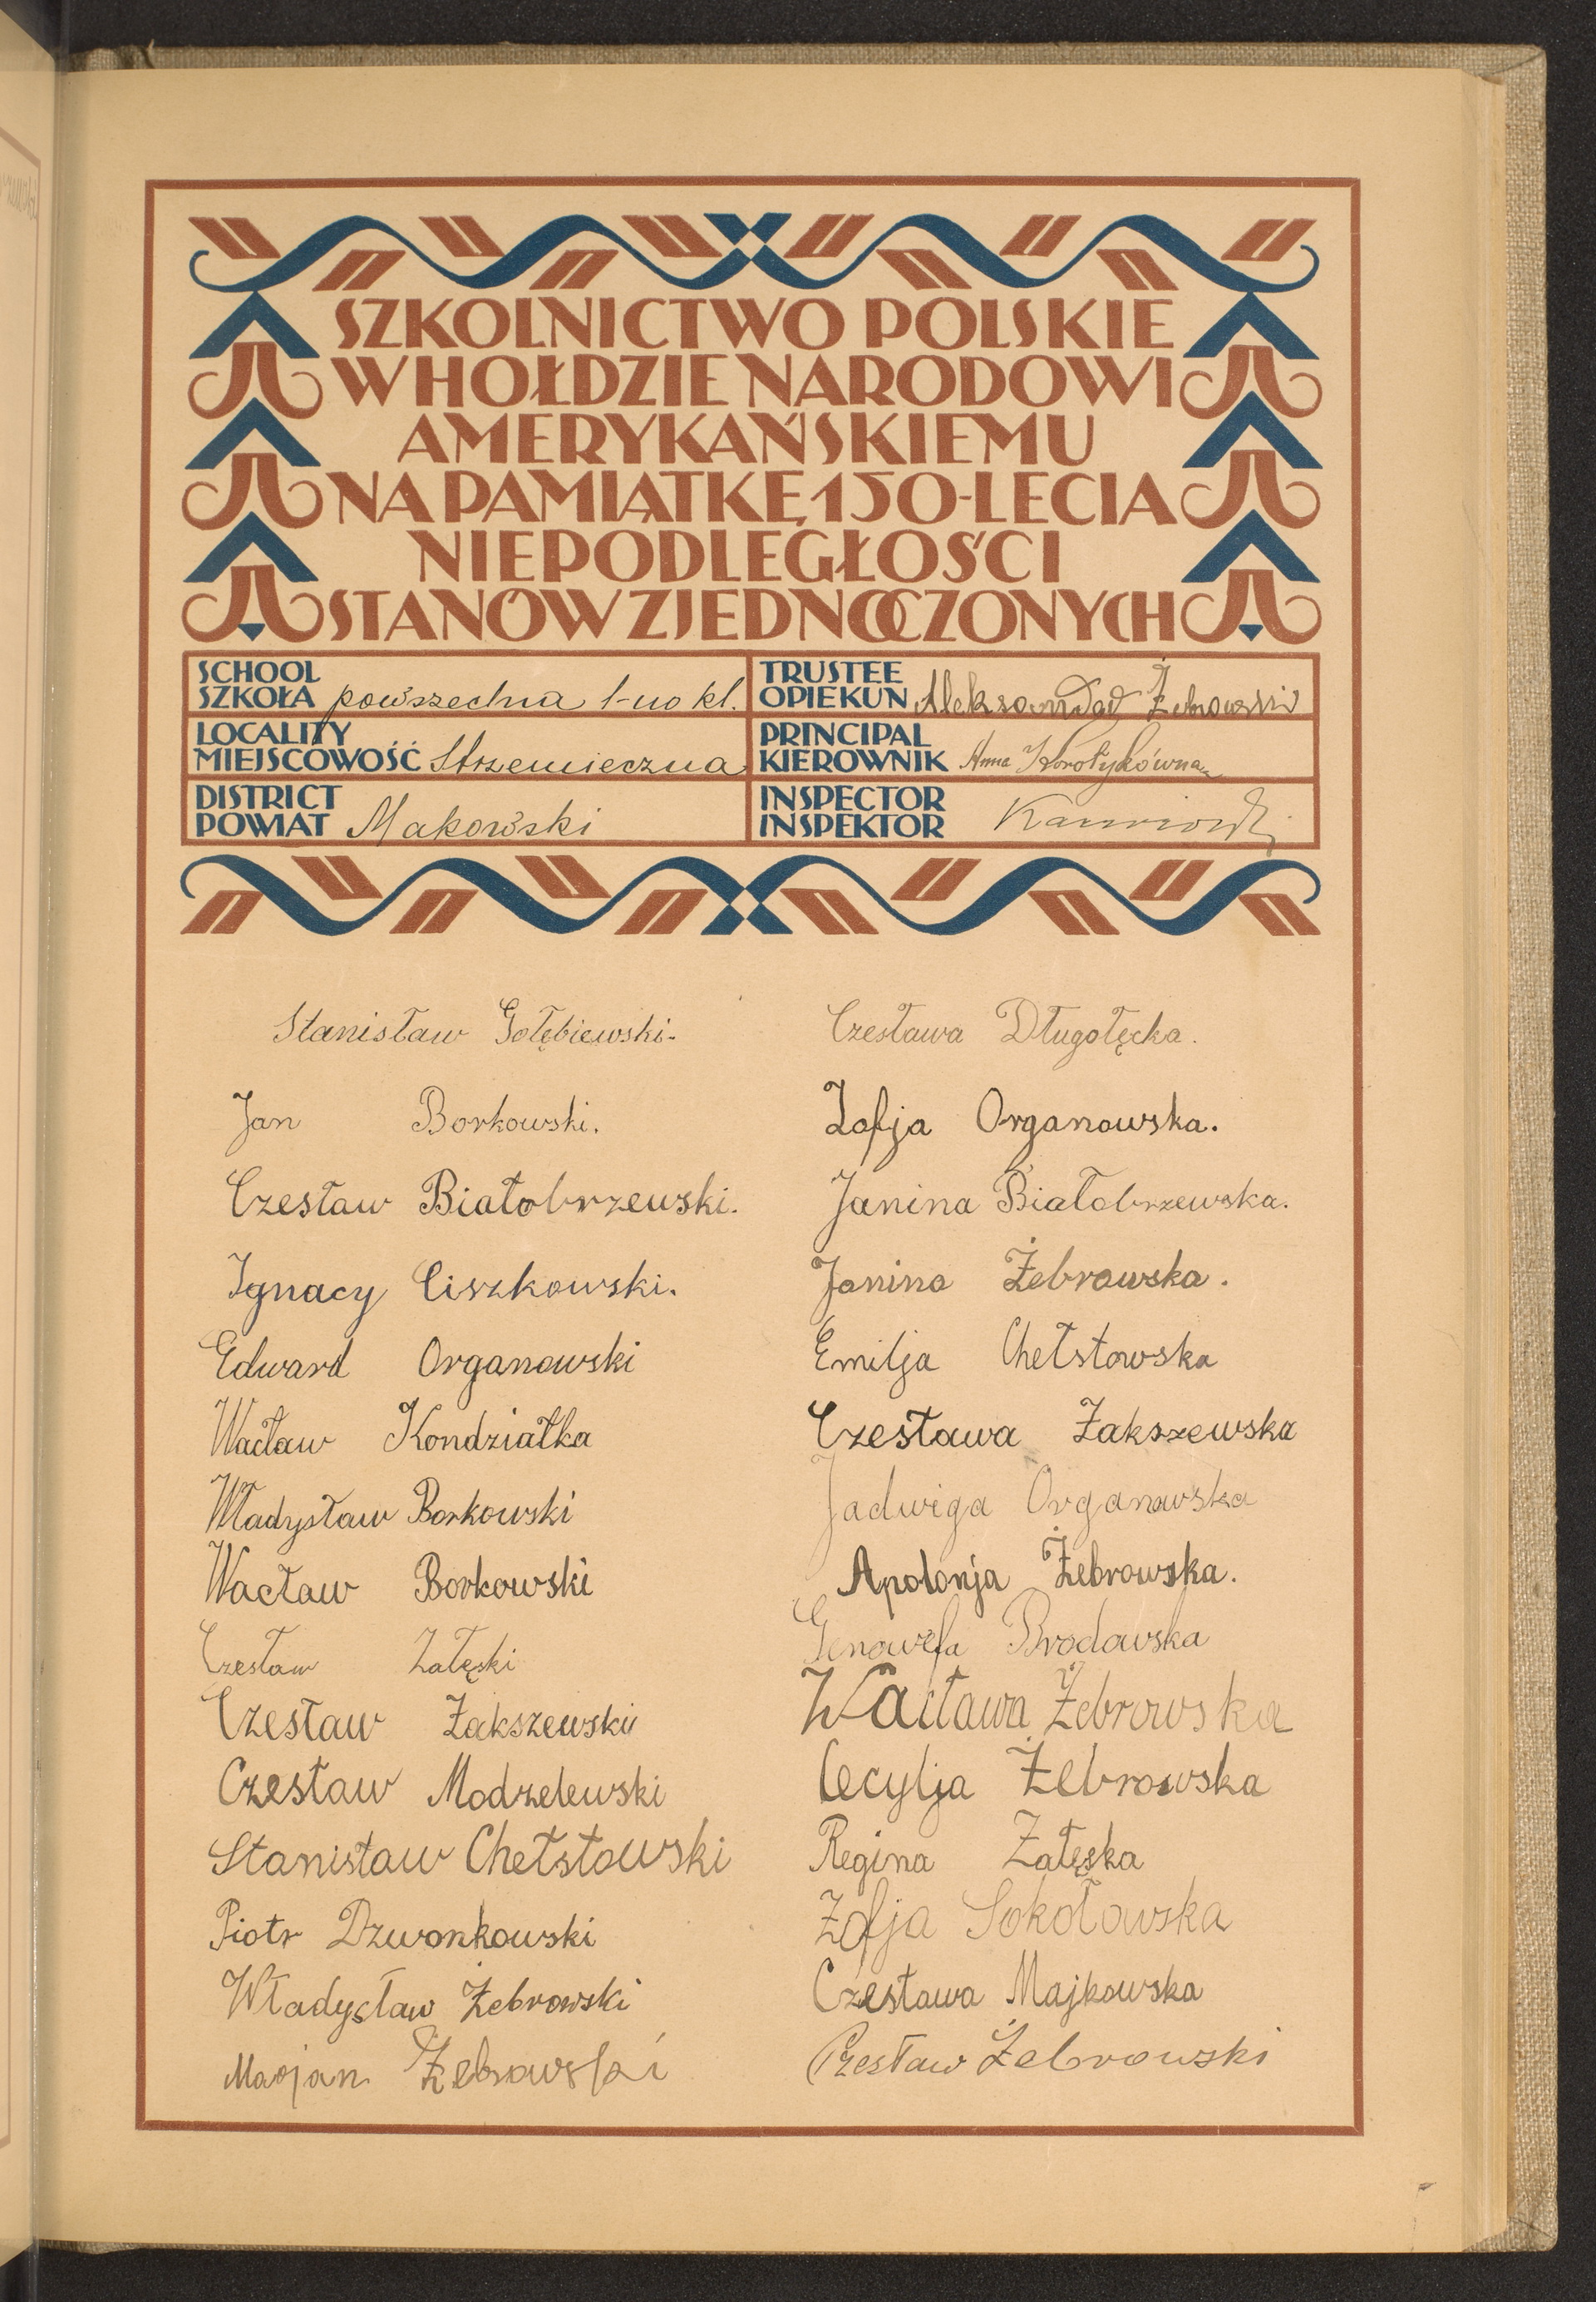 SZKOLNICTWO POLSKIE
W HOŁDZIE NARODOWI
AMERYKAŃSKIEMU
NA PAMIĄTKĘ 150-LECIA
NIEPODLEGŁOŚCI
STANÓW ZJEDNOCZONYCH
SCHOOL
SZKOŁA powszechna 1-no kl.
TRUSTEE
OPIEKUN Aleksander Żebrowski
LOCALITY
MIEJSCOWOŚĆ Strzemieczna
PRINCIPAL
KIEROWNIK Anna
DISTRICT
POWIAT Makowski
INSPECTOR
INSPEKTOR
Stanisław Gołębiewski.
Jan Borkowski.
Czesław Białobrzewski.
Ignacy Ciszkowski.
Edward Organowski
Wacław Kondziałka
Władysław Borkowski
Wacław Borkowski
Czesław Załęski
Czesław Zakszewski
Czesław Modzelewski
Stanisław Chełstowski
Piotr Dzwonkowski
Władysław Żebrowski
Marjan Żebrowski
Czesława Długołęcka.
Zofja Organowska.
Janina Białobrzewska.
Janina Żebrowska.
Emilja Chełstowska
Czesława Zakszewska
Jadwiga Organowska
Apolonja Żebrowska.
Genowefa Brodowska
Wacława Żebrowska
Cecylja Żebrowska
Regina Załęska
Zofja Sokołowska
Czesława Majkowska
Czesław Żebrowski